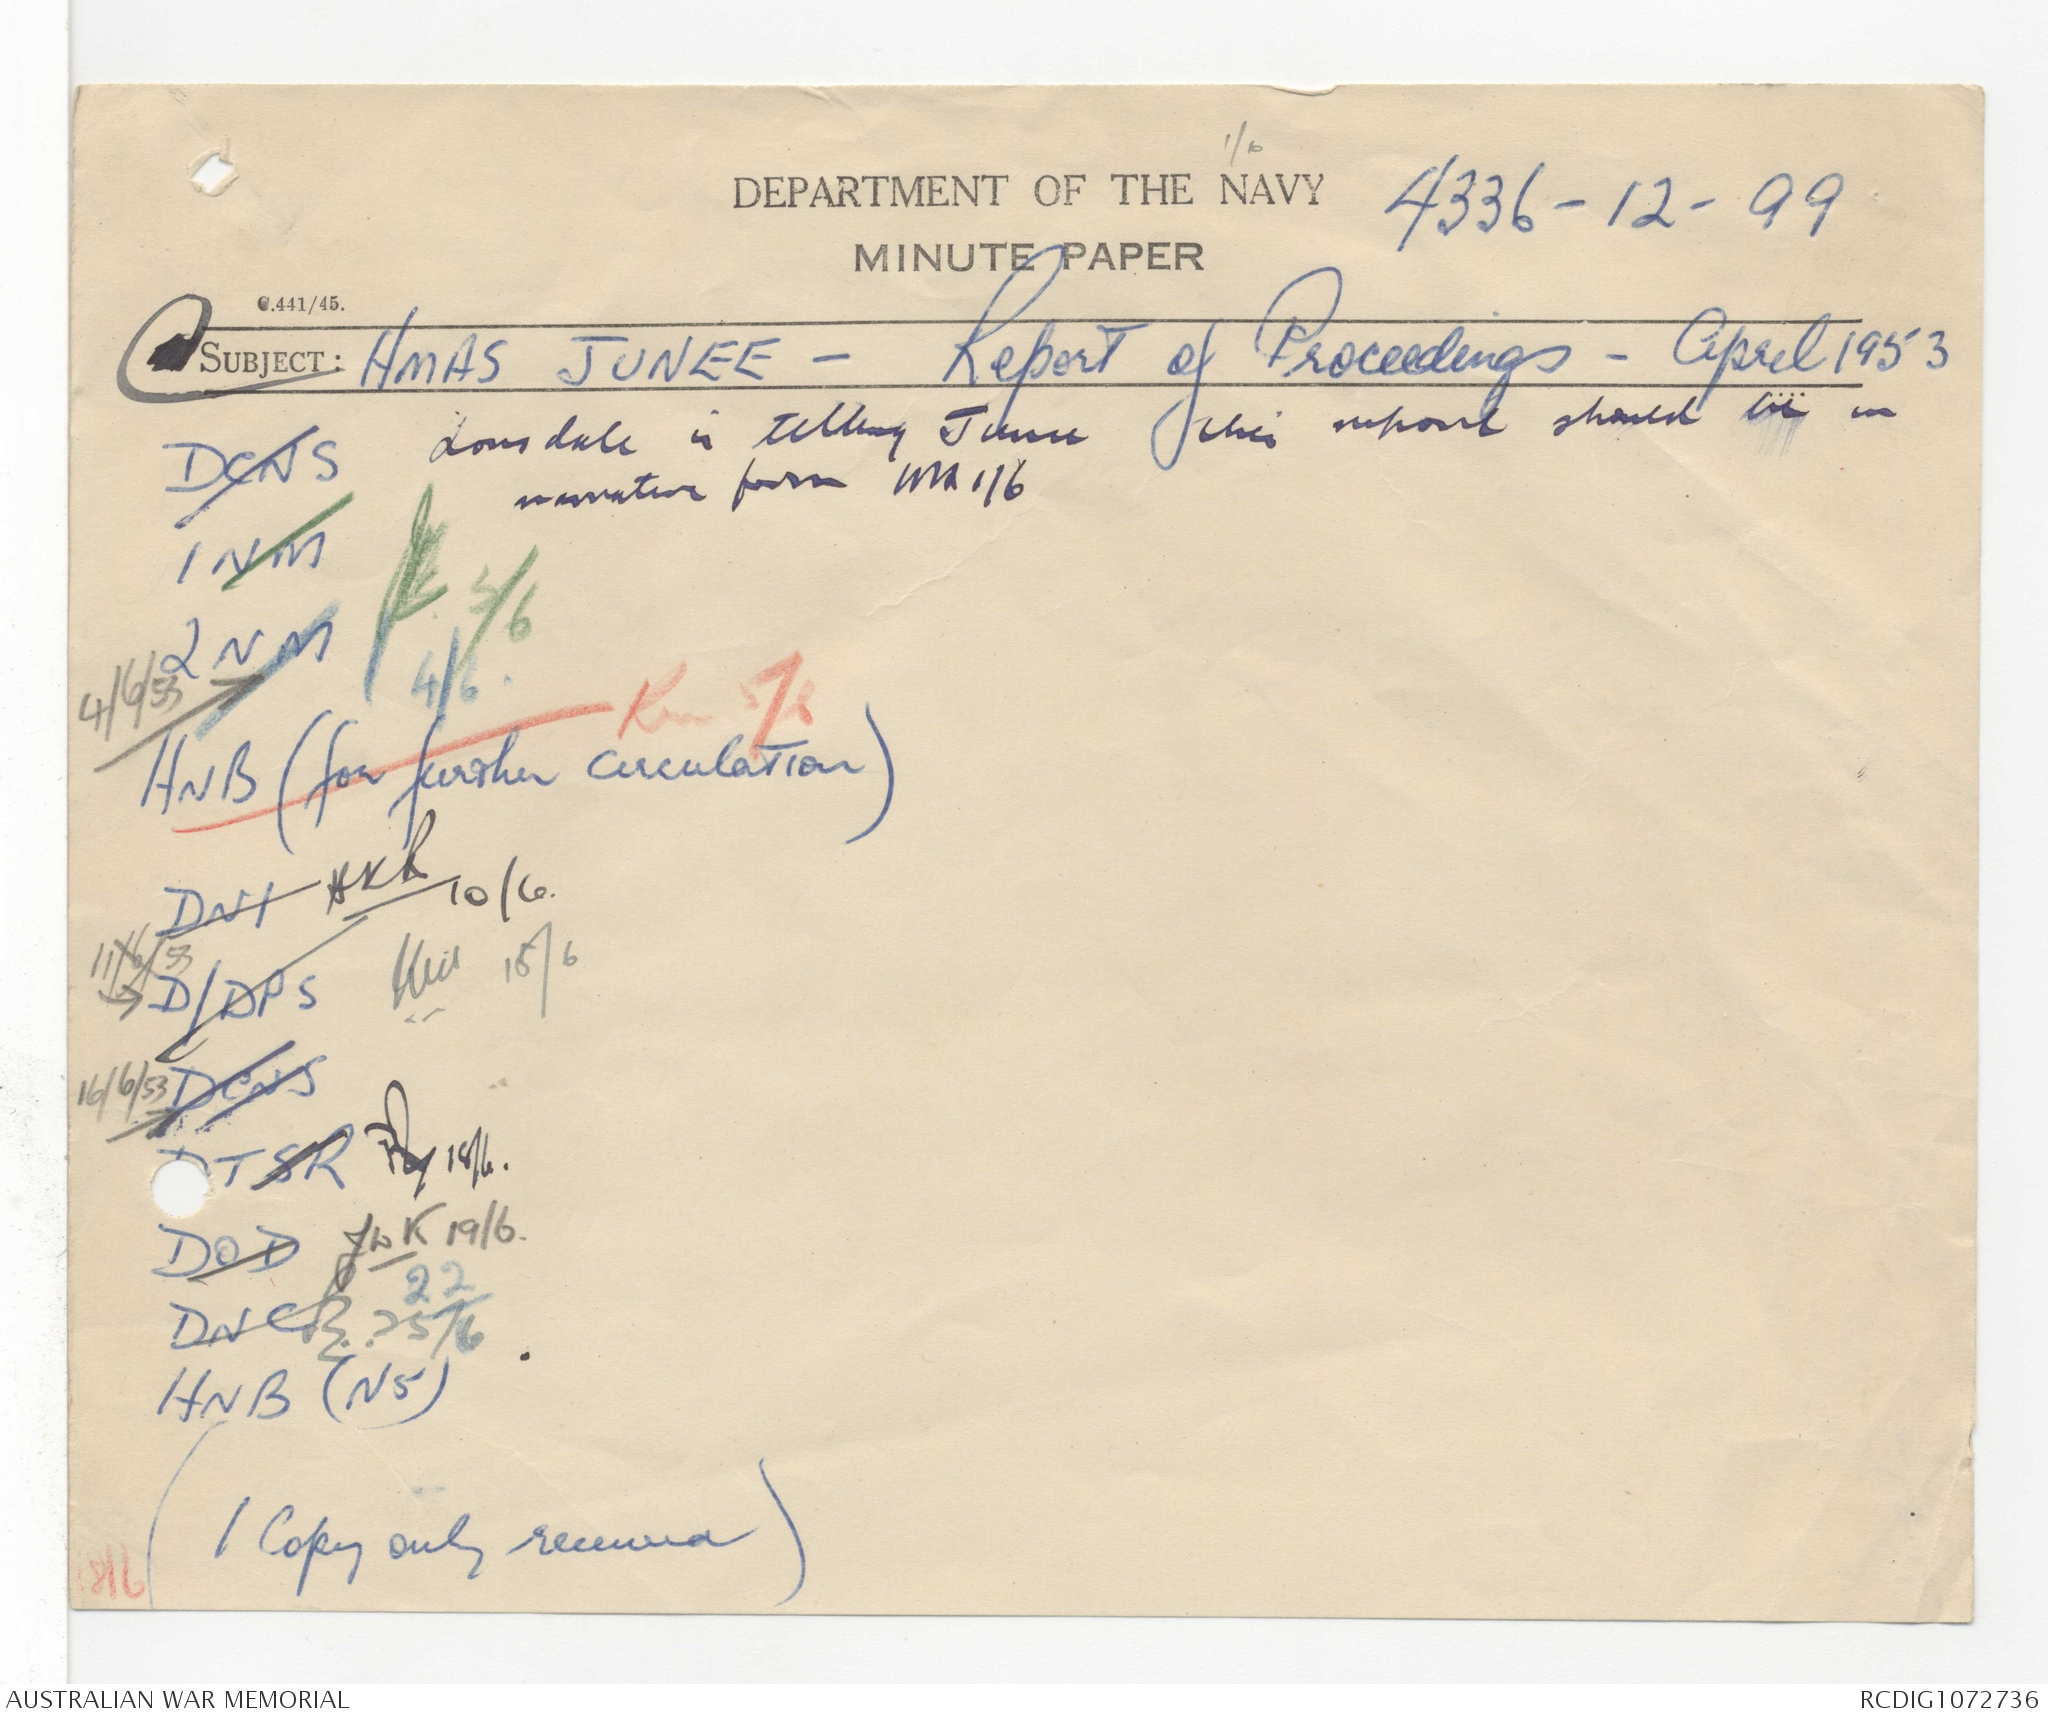 1/6
DEPARTMENT OF THE NAVY 4336-12-99
MINUTE PAPER
C.441/45.
SUBJECT: HMAS JUNEE - Report of Proceedings - April 1953
DCNS Lonsdale is telling Junee this report should be in
narrative form 1/6
1NM
3/6
2NM
4/6/53
4/6.
5/6
HNB (for further circulation)
DNI 10/6.
11/6/53
D/DPS 15/6
16/6/53 DCNS
DTSR 18/6.
DOD 19/6.
22
DNC 25/6
HNB (N5)
(1 Copy only received)
18/6
AUSTRALIAN WAR MEMORIAL RCDIG1072736